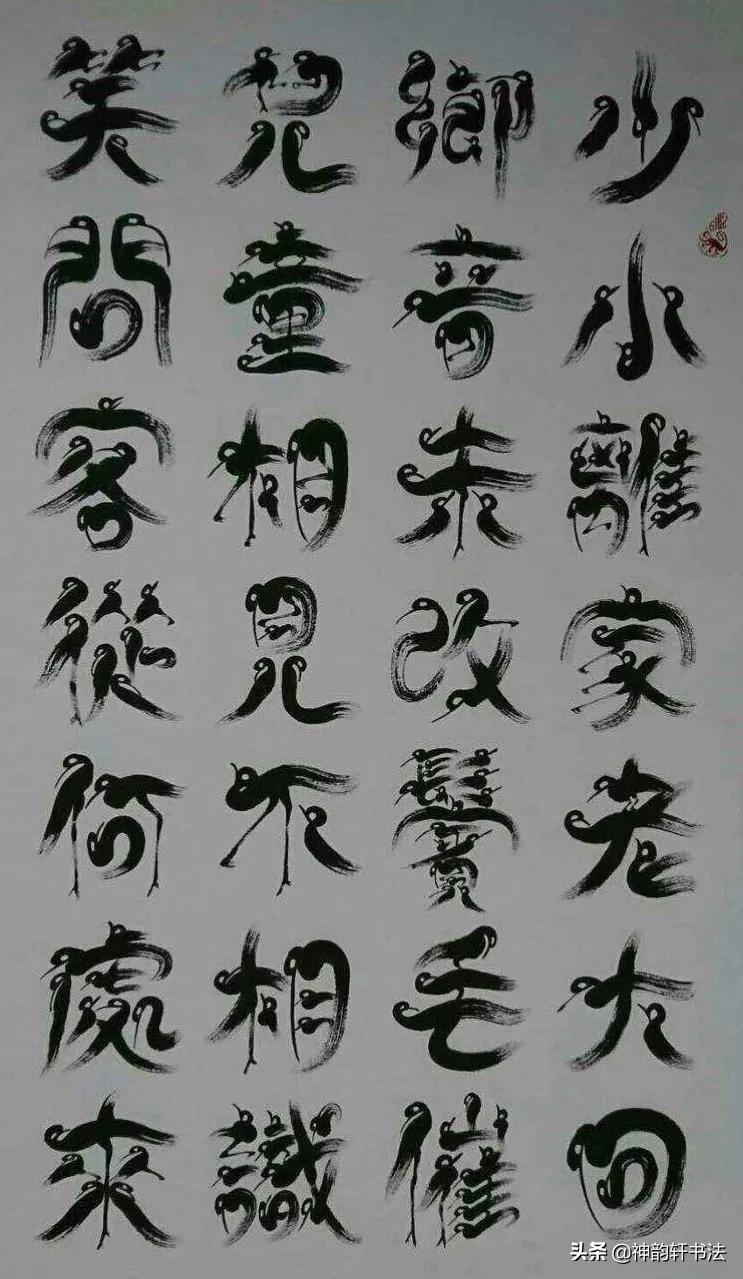 少小離家老大回
鄉音未改鬢毛催
兒童相見不相識
笑問客從何處來
头条 @神韵轩书法